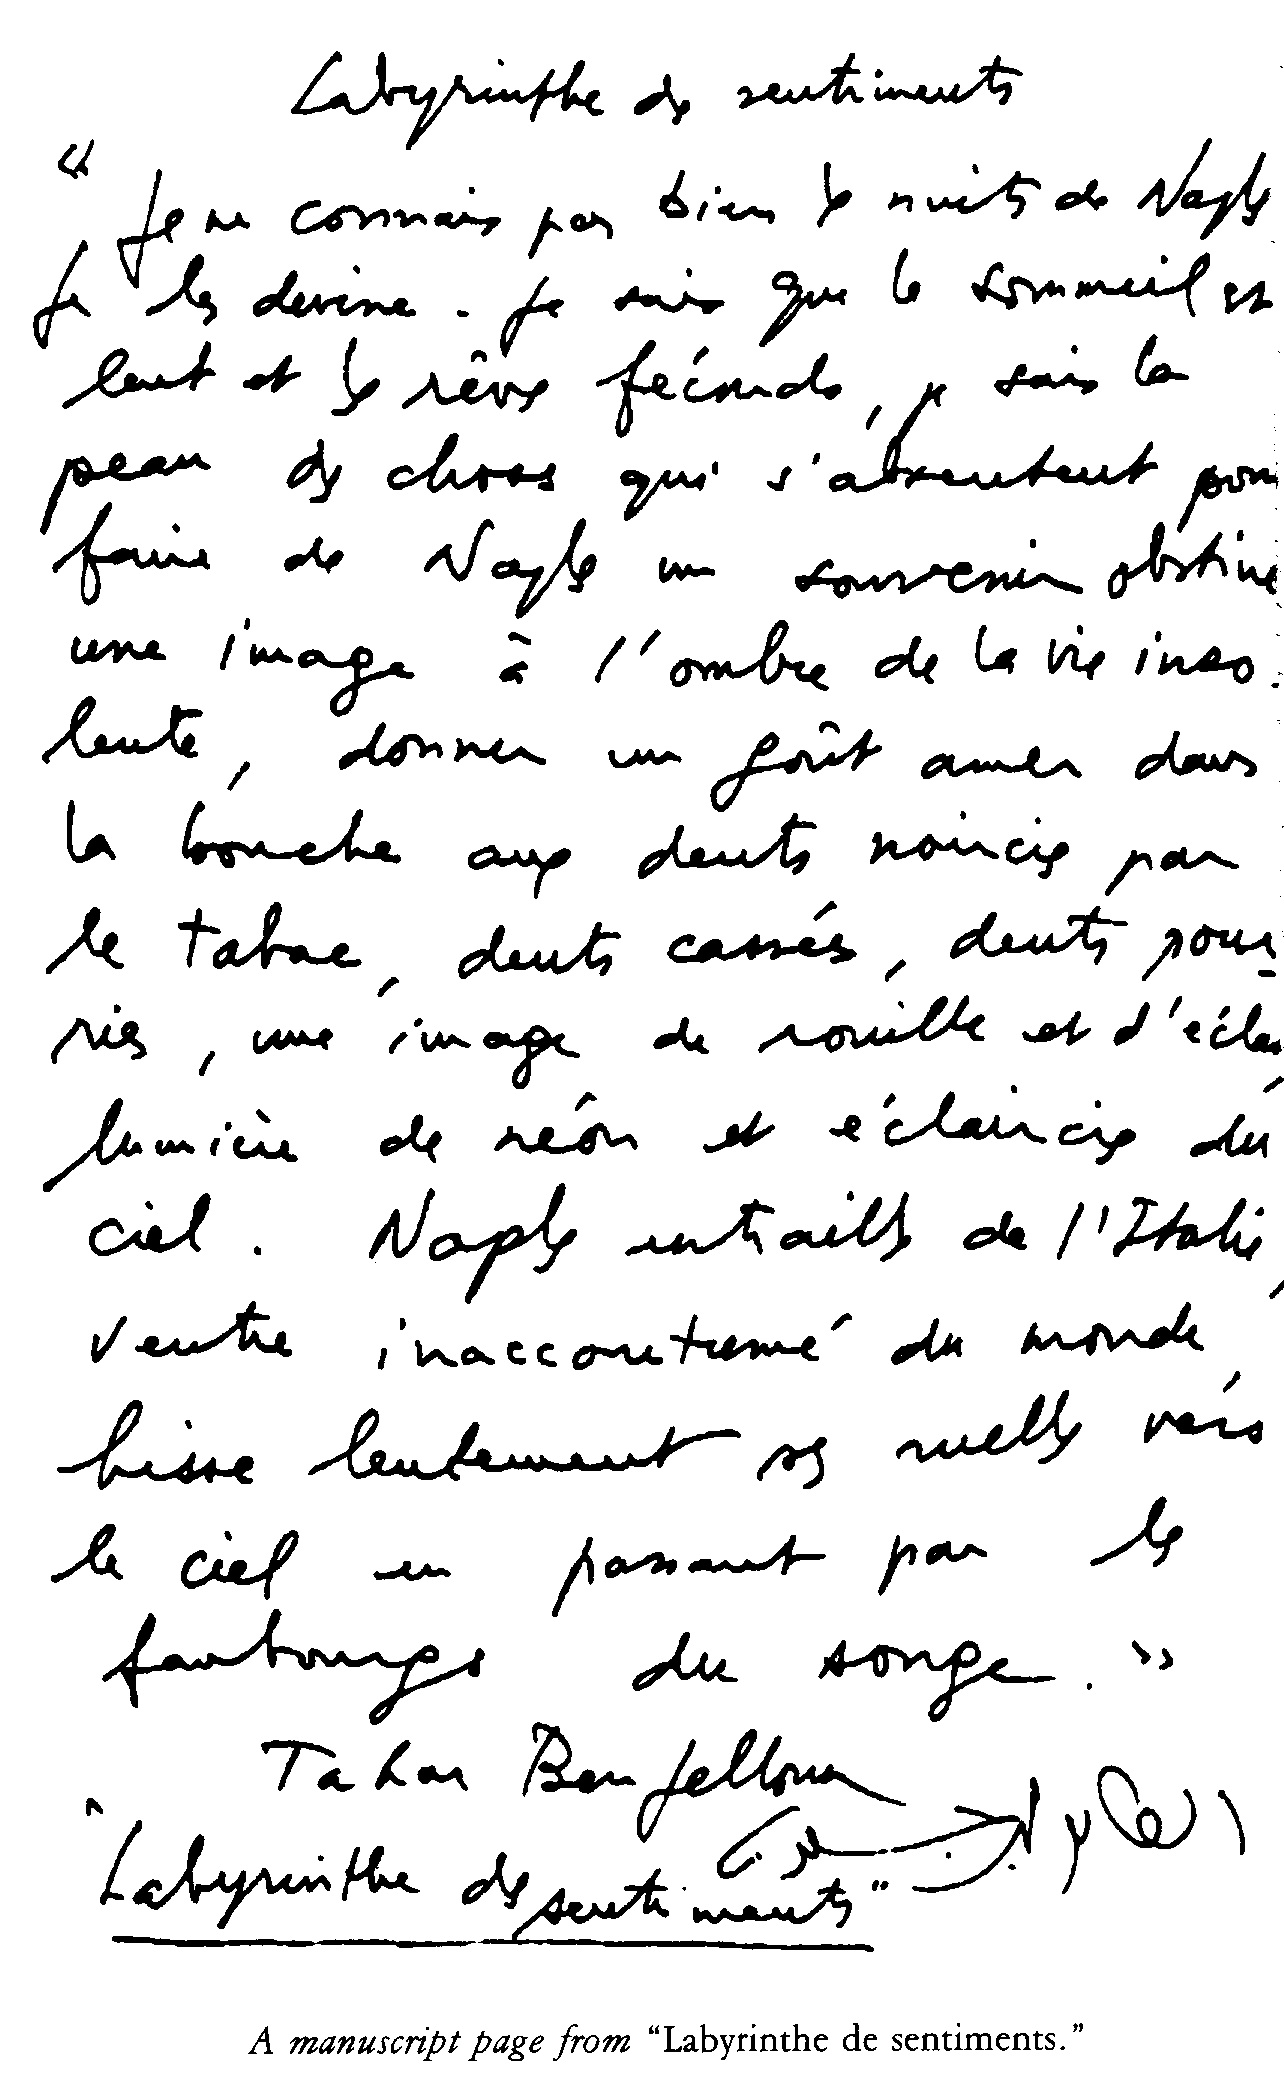 Labyrinthe des sentiments
« Je ne connais pas bien les nuits de Naples
Je les devine. Je sais que le sommeil est
lent et les rêves féconds, je sais la
peau des choses qui s'absentent pour
faire de Naples un souvenir obstiné
une image à l'ombre de la vie inso-
lente, donner un goût amer dans
la bouche aux dents noircies par
le tabac, dents cassées, dents pour-
ries, une image de rouille et d'éclat,
lumière de néon et éclaircies du
ciel. Naples entrailles de l'Italie,
ventre inaccoutumé du monde
hisse lentement ses ruelles vers
le ciel en passant par les
faubourgs du songe. »
Tahar Ben Jelloun
"Labyrinthe des sentiments"
A manuscript page from “Labyrinthe de sentiments.”